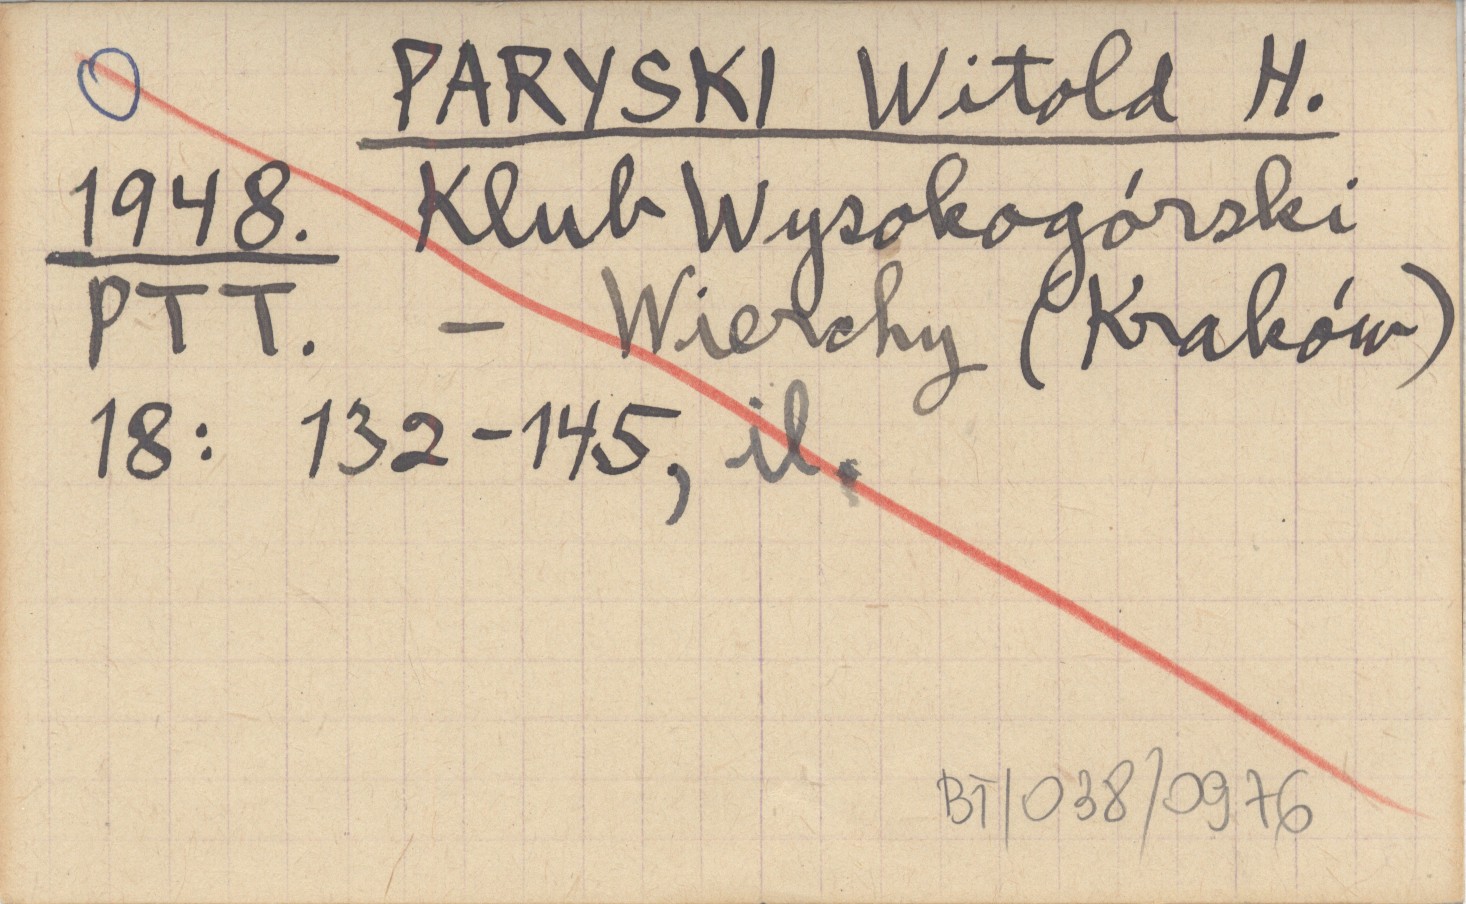 PARYSKI Witold H.
1948. Klub Wysokogórski
PTT. - Wierchy (Kraków)
18: 132-145, il.
BT/038/0976